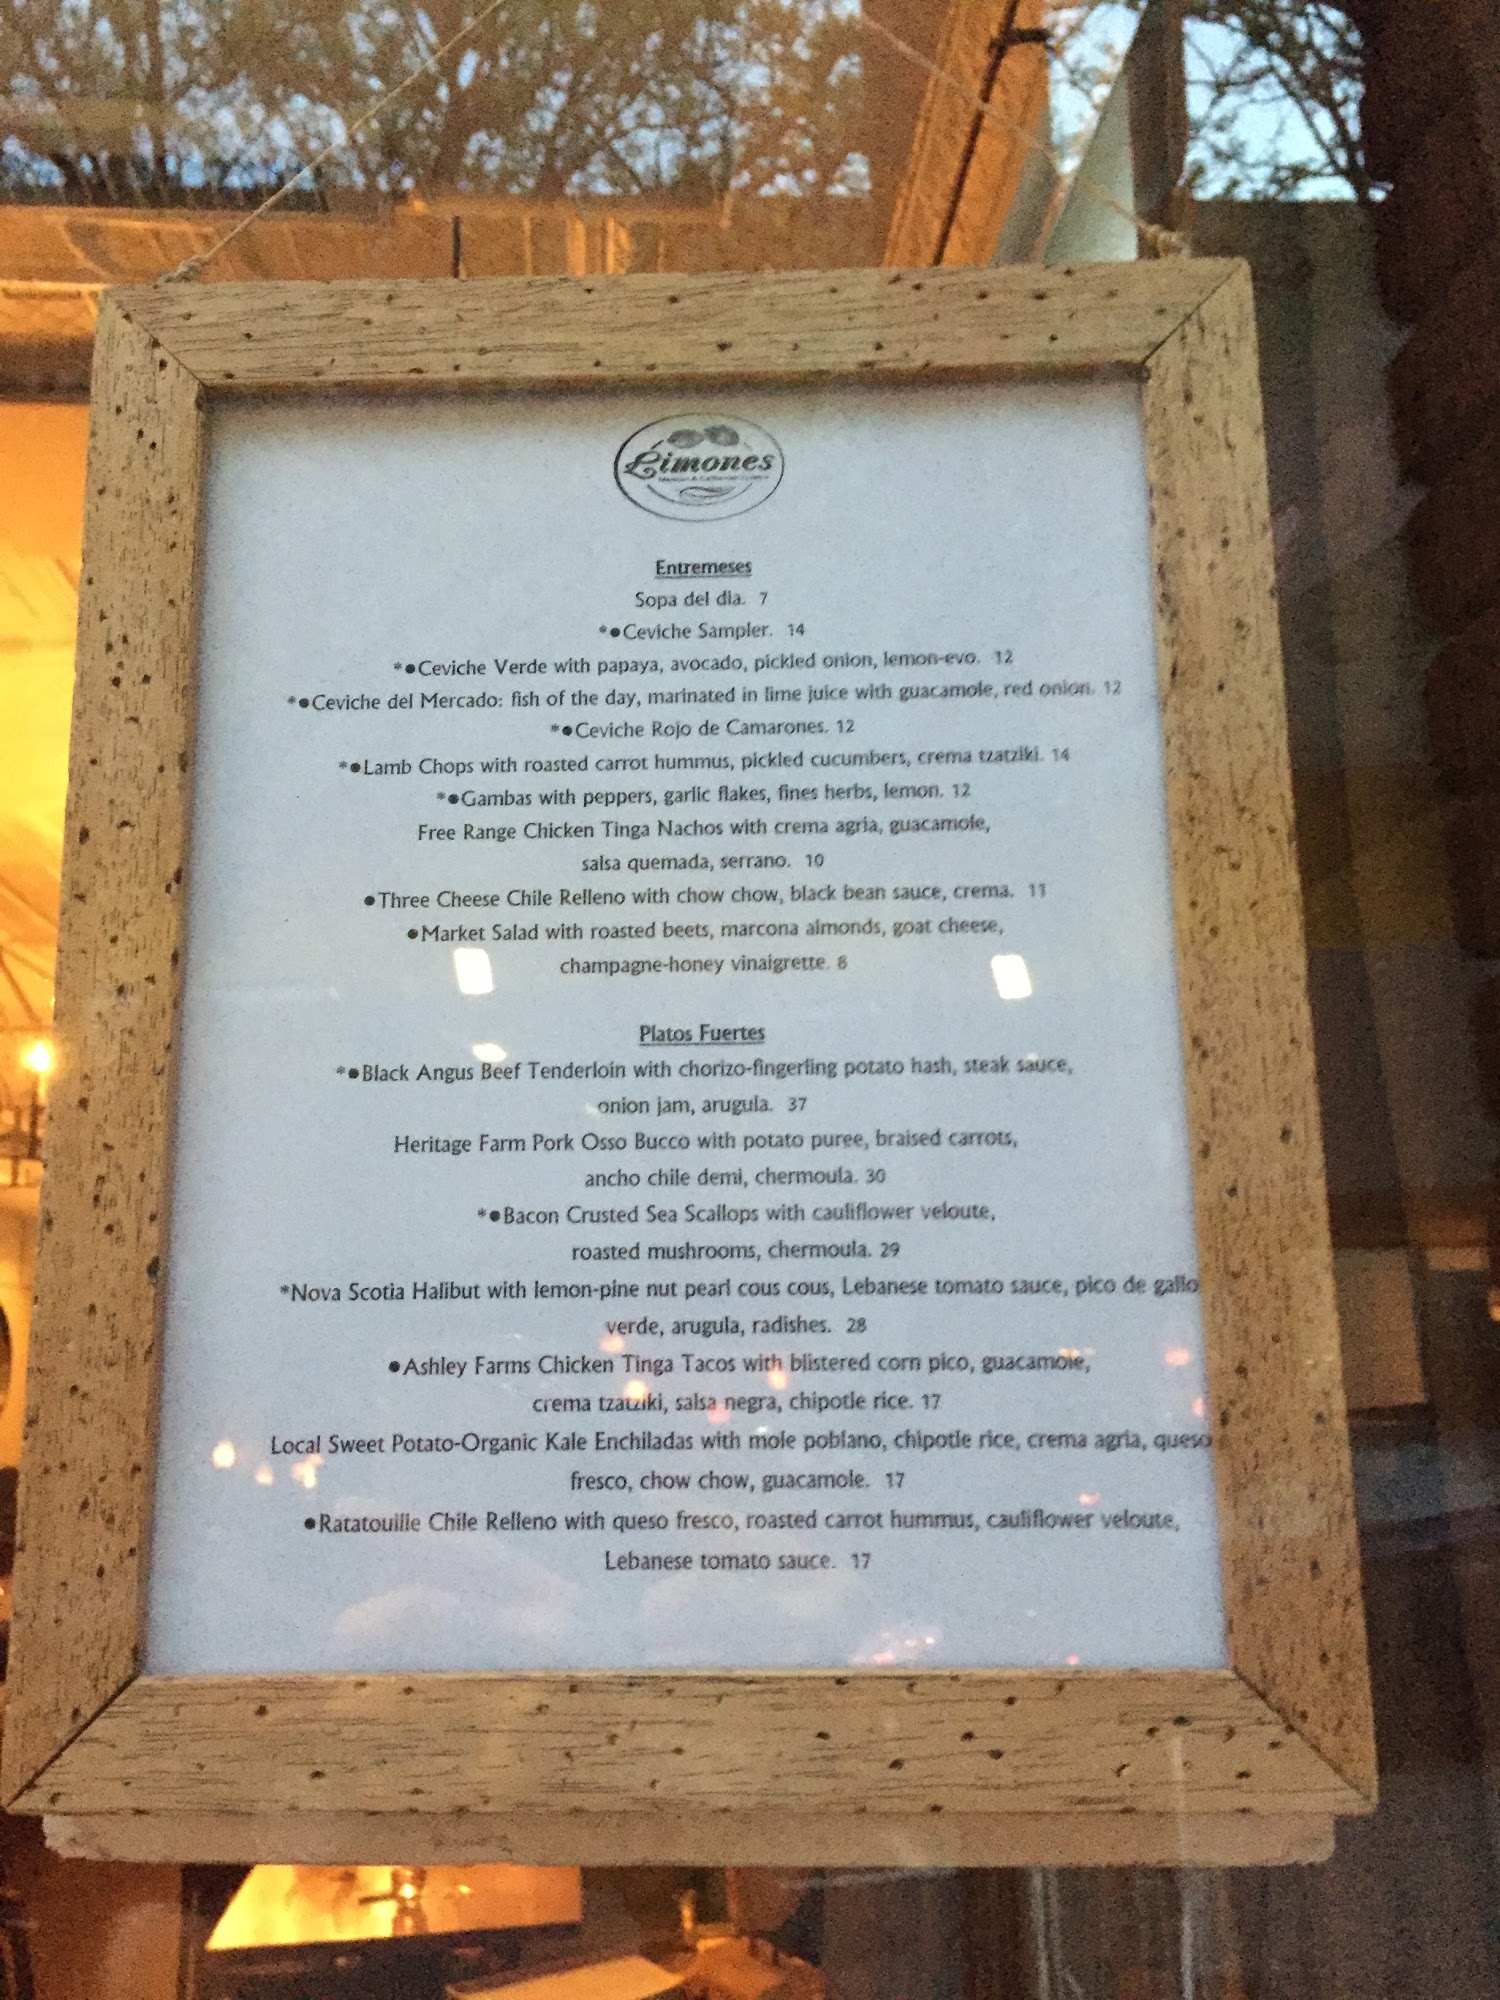 Limones
Entremeses
Sopa del dia. 7
*●Ceviche Sampler. 14
*●Ceviche Verde with papaya, avocado, pickled onion, lemon-evo. 12
*●Ceviche del Mercado: fish of the day, marinated in lime juice with guacamole, red onion. 12
*●Ceviche Rojo de Camarones. 12
*●Lamb Chops with roasted carrot hummus, pickled cucumbers, crema tzatziki. 14
*●Gambas with peppers, garlic flakes, fines herbs, lemon. 12
Free Range Chicken Tinga Nachos with crema agria, guacamole,
salsa quemada, serrano. 10
●Three Cheese Chile Relleno with chow chow, black bean sauce, crema. 11
●Market Salad with roasted beets, marcona almonds, goat cheese,
champagne-honey vinaigrette. 8
Platos Fuertes
*●Black Angus Beef Tenderloin with chorizo-fingerling potato hash, steak sauce,
onion jam, arugula. 37
Heritage Farm Pork Osso Bucco with potato puree, braised carrots,
ancho chile demi, chermoula. 30
*●Bacon Crusted Sea Scallops with cauliflower veloute,
roasted mushrooms, chermoula. 29
*Nova Scotia Halibut with lemon-pine nut pearl cous cous, Lebanese tomato sauce, pico de gallo
verde, arugula, radishes. 28
●Ashley Farms Chicken Tinga Tacos with blistered corn pico, guacamole,
crema tzatziki, salsa negra, chipotle rice. 17
Local Sweet Potato-Organic Kale Enchiladas with mole poblano, chipotle rice, crema agria, queso
fresco, chow chow, guacamole. 17
●Ratatouille Chile Relleno with queso fresco, roasted carrot hummus, cauliflower veloute,
Lebanese tomato sauce. 17